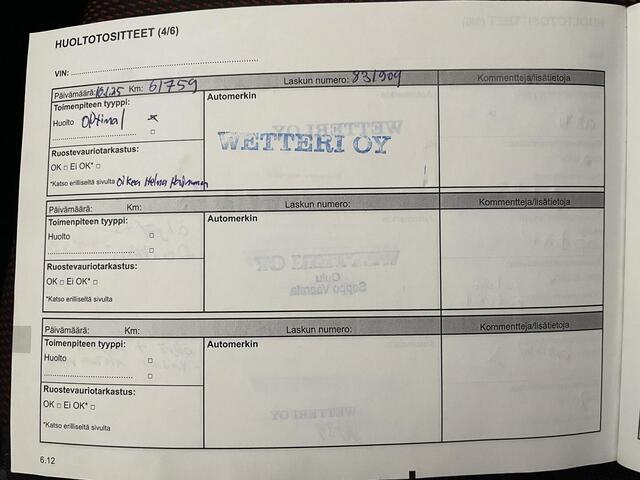 HUOLTOTOSITTEET (4/6)
VIN:
Päivämäärä: Km: 61759 Laskun numero: 831909 Kommentteja/lisätietoja
Toimenpiteen tyyppi: Automerkin
Huolto Optimal
WETTERI OY
Ruostevauriotarkastus:
OK □ Ei OK* □
*Katso erilliseltä sivulta Oikea Helma
Päivämäärä: Km: Laskun numero: Kommentteja/lisätietoja
Toimenpiteen tyyppi: Automerkin
Huolto □
□
Ruostevauriotarkastus:
OK □ Ei OK* □
*Katso erilliseltä sivulta
Päivämäärä: Km: Laskun numero: Kommentteja/lisätietoja
Toimenpiteen tyyppi: Automerkin
Huolto □
□
Ruostevauriotarkastus:
OK □ Ei OK* □
*Katso erilliseltä sivulta
6.12